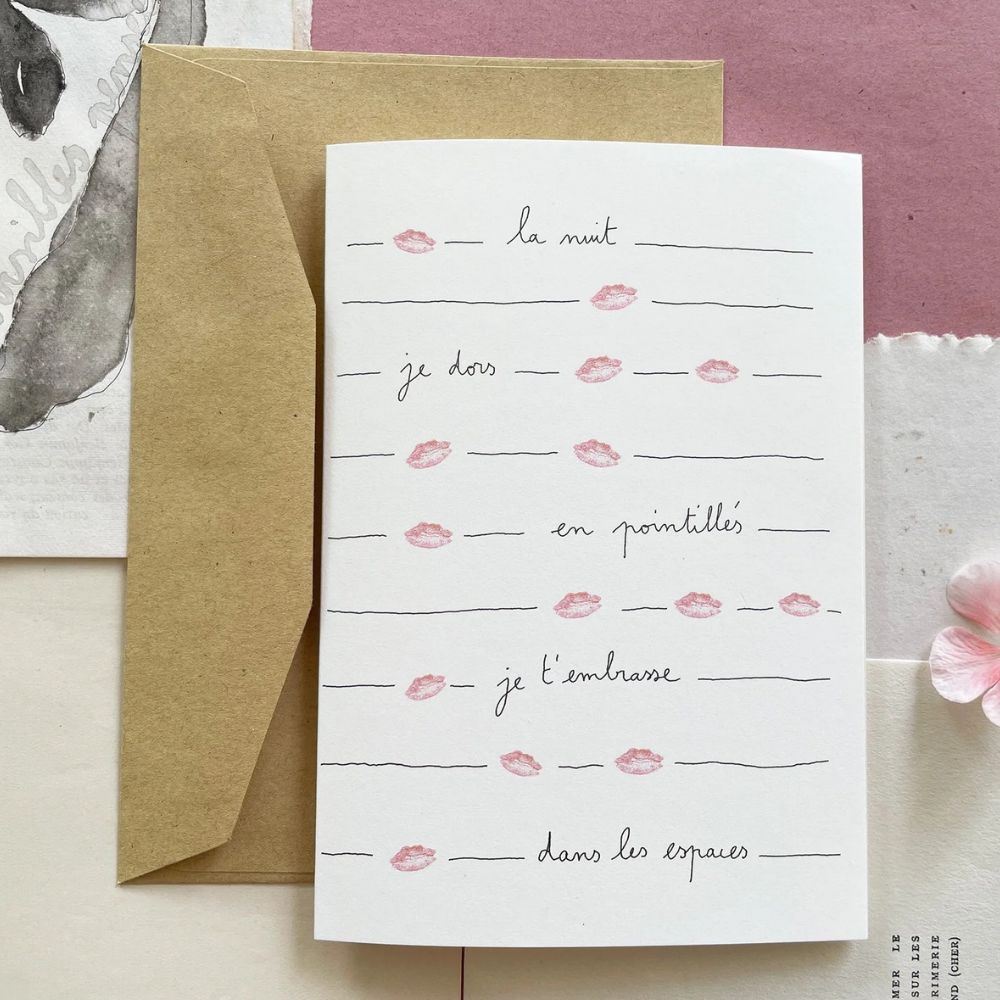 la nuit
je dors
en pointillés
je t'embrasse
dans les espaces
MER LE
SUR LES
RIMERIE
ND (CHER)